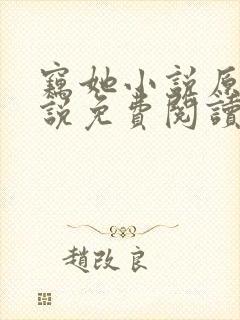 竊她小說原
說免費閱讀
趙改良